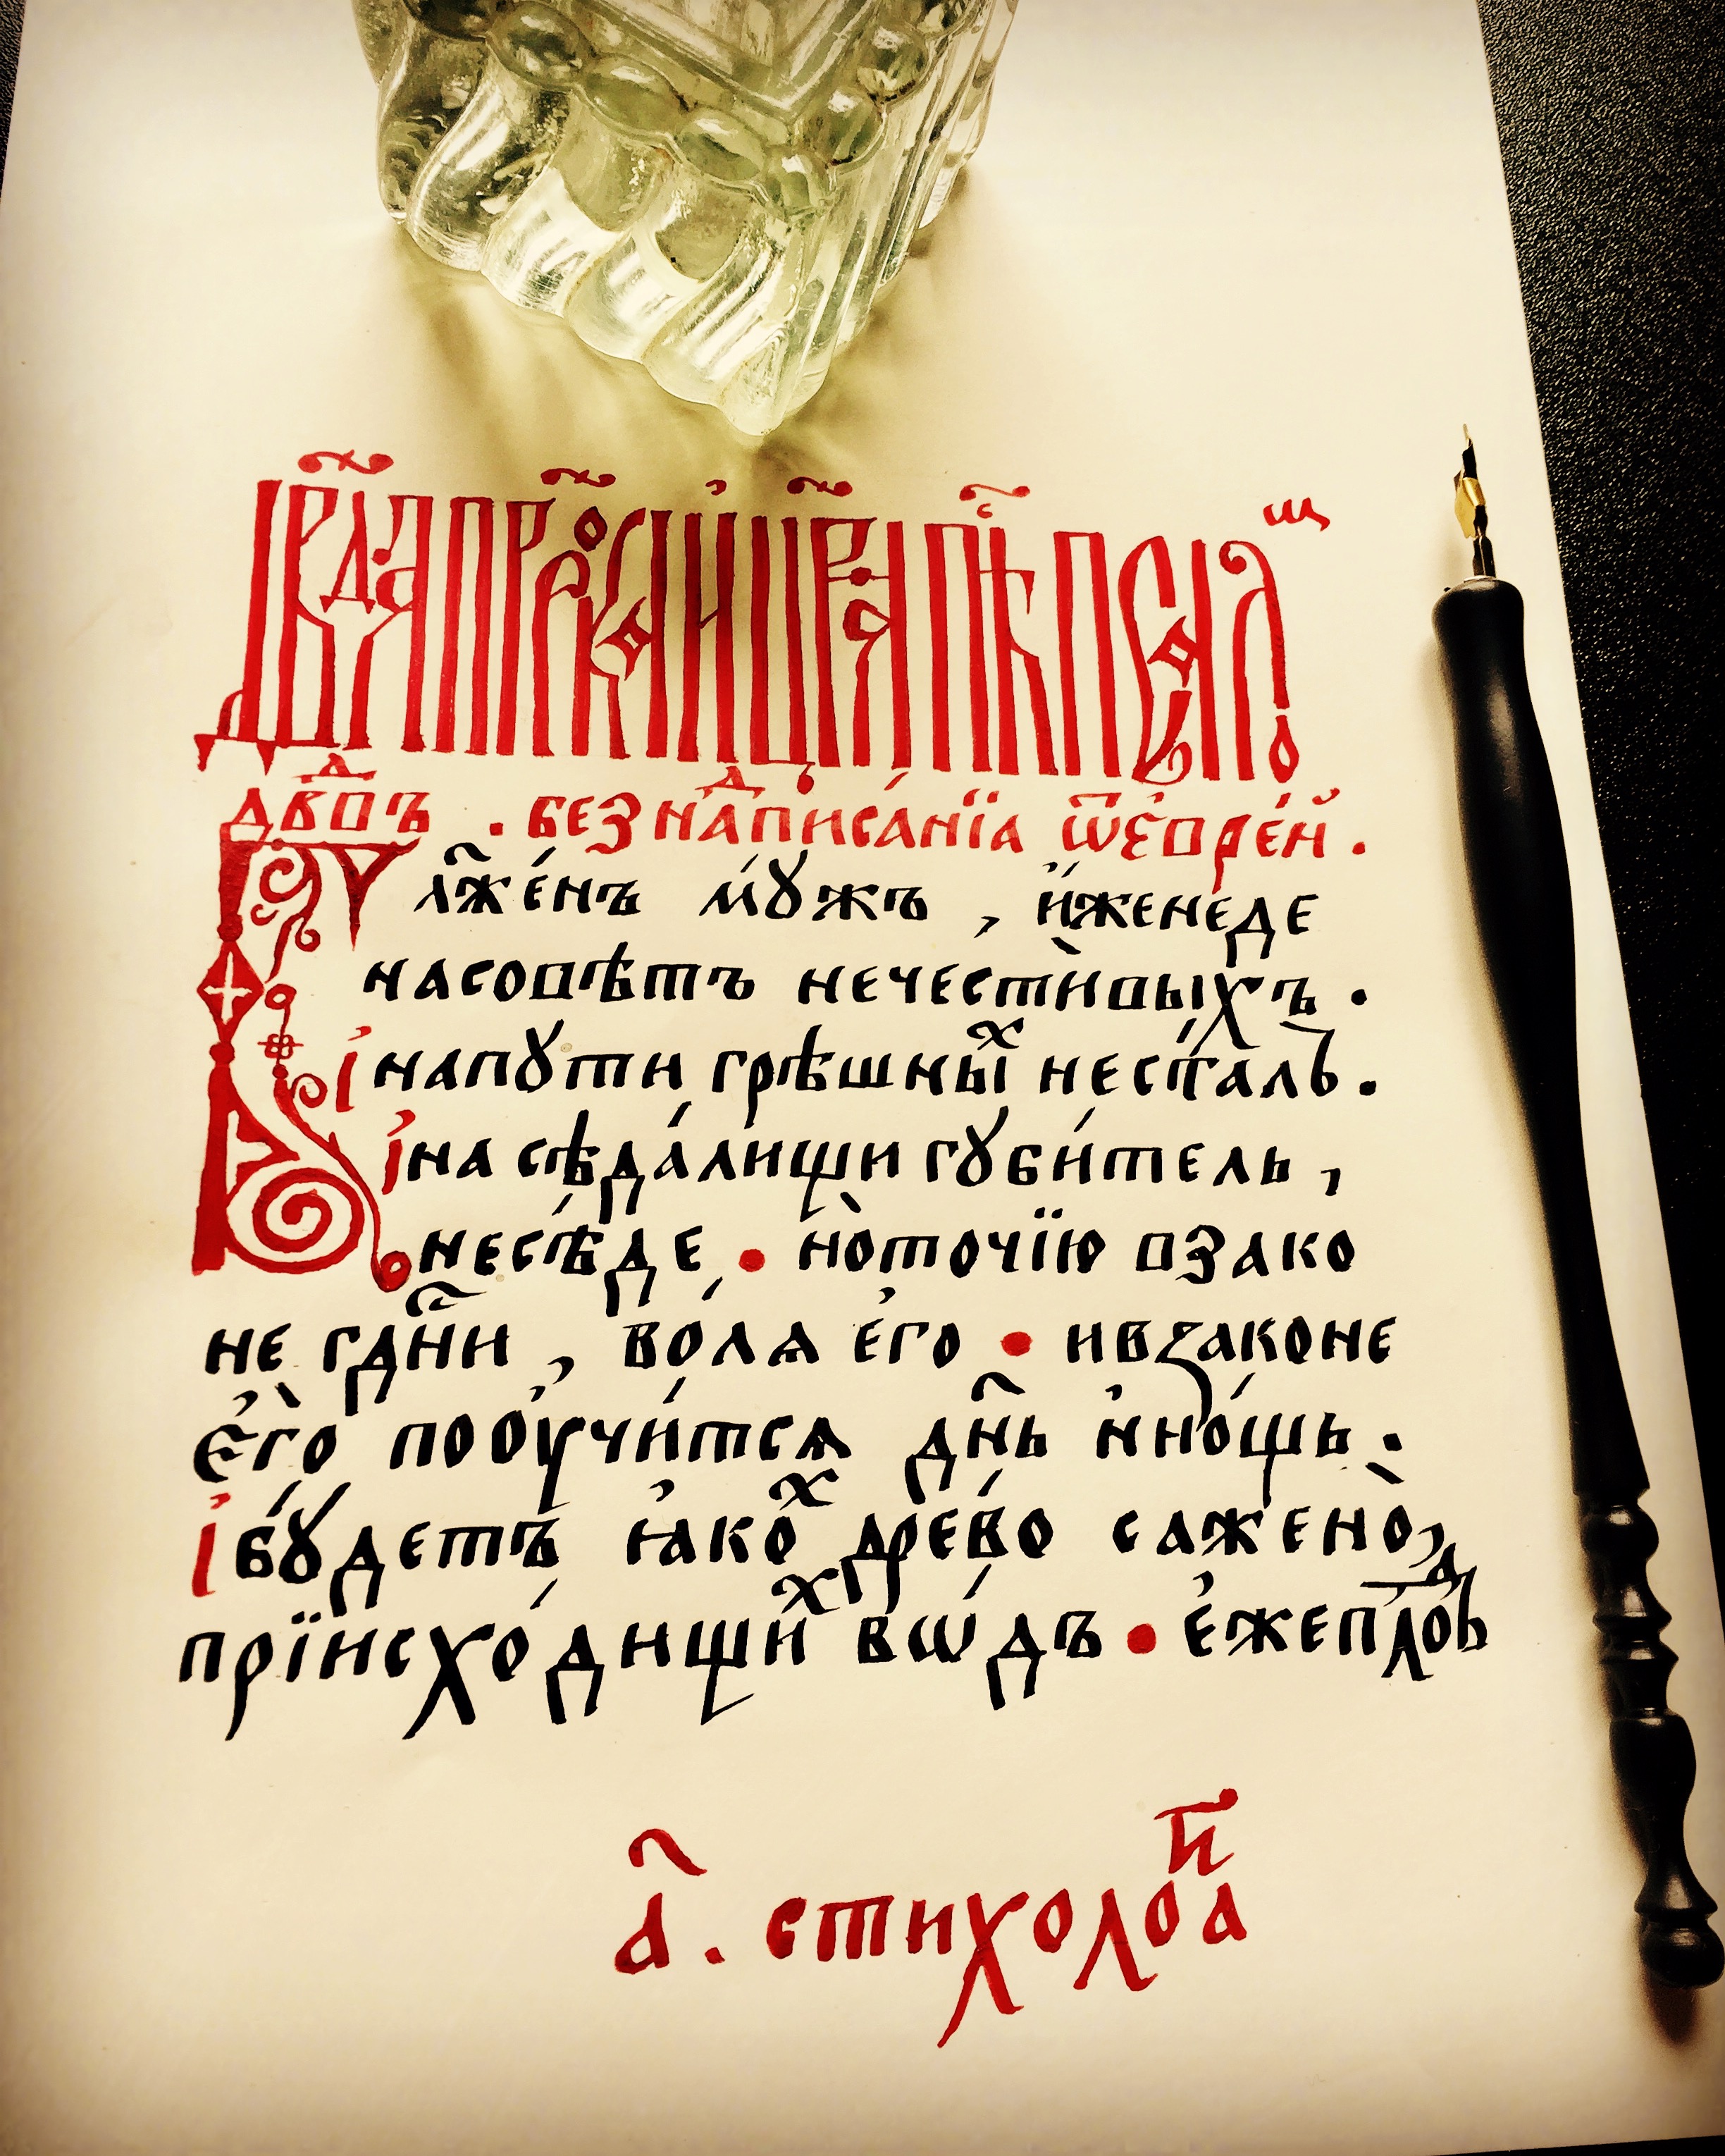 Двдапррокаицрѧпѣпсал҇
двдвъ . без написа́нїа ѿєвре́й .
Бл҃же́нъ му́жъ , и́женеде
насовѣтъ нечести́выхъ .
і напꙋти грѣ́шныⷯ неста́лъ .
і на сѣда́лищи гꙋби́тель ,
несѣ́де • но̀точїю взако
не гдⷭ҇ни , во́лѧ є҆го • ивꙁаконе
є҆го̀ поѹчи́тсѧ дн҃ь и҆но́щь .
і бꙋ́детъ ꙗ҆ко древо сажено̀ ,
прїисхо́дищиⷯ вѡ́дъ • є҆жеплоⷣ
а҃ . стихолоⷢ҇иа